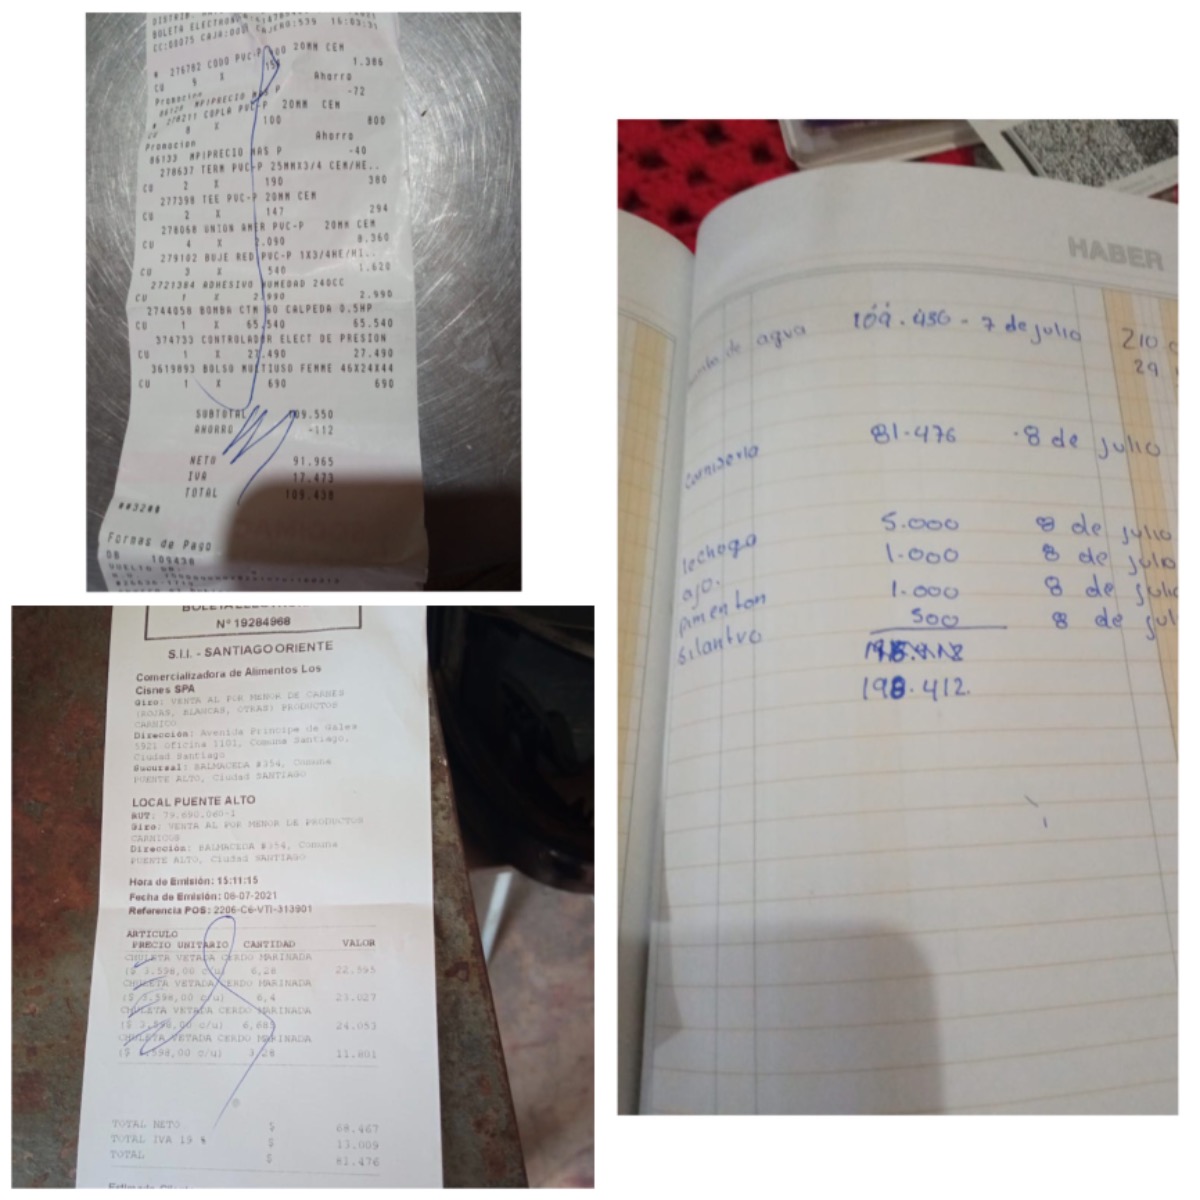 BOLETA ELECTRON
CAJERO:539 16:03:31
# 276782 CODO PVC-P 20MM CEM
CU 9 X 1.386
Promocion Ahorro
MP)PRECIO MAS P -72
COPLA PVC-P 20MM CEM
CU 8 X 100 800
Promocion Ahorro
86133 MP)PRECIO MAS P -40
278637 TERM PVC-P 25MMX3/4 CEM/HE..
CU 2 X 190 380
277398 TEE PVC-P 20MM CEM
CU 2 X 147 294
278068 UNION AMER PVC-P 20MM CEM
CU 4 X 2.090 8.360
279102 BUJE RED PVC-P 1X3/4HE/HI..
CU 3 X 540 1.620
2721384 ADHESIVO HUMEDAD 240CC
CU 1 X 2.990 2.990
2744058 BOMBA CTM 60 CALPEDA 0.5HP
CU 1 X 65.540 65.540
374733 CONTROLADOR ELECT DE PRESION
CU 1 X 27.490 27.490
3619893 BOLSO MULTIUSO FEMME 46X24X44
CU 1 X 690 690
SUBTOTAL 109.550
AHORRO -112
NETO 91.965
IVA 17.473
TOTAL 109.438
##32##
Formas de Pago
DB 109438
VUELTO
N° 19284968
S.I.I. - SANTIAGO ORIENTE
Comercializadora de Alimentos Los
Cisnes SPA
Giro: VENTA AL POR MENOR DE CARNES
(ROJAS, BLANCAS, OTRAS) PRODUCTOS
CARNICO
Dirección: Avenida Principe de Gales
5921 Oficina 1101, Comuna Santiago,
Ciudad Santiago
Sucursal: BALMACEDA #354, Comuna
PUENTE ALTO, Ciudad SANTIAGO
LOCAL PUENTE ALTO
RUT: 79.690.060-1
Giro: VENTA AL POR MENOR DE PRODUCTOS
CARNICOS
Dirección: BALMACEDA #354, Comuna
PUENTE ALTO, Ciudad SANTIAGO
Hora de Emisión: 15:11:15
Fecha de Emisión: 08-07-2021
Referencia POS: 2206-C6-VTI-313901
ARTICULO
PRECIO UNITARIO CANTIDAD VALOR
CHULETA VETADA CERDO MARINADA
($ 3.598,00 c/u) 6,28 22.595
CHULETA VETADA CERDO MARINADA
($ 3.598,00 c/u) 6,4 23.027
CHULETA VETADA CERDO MARINADA
($ 3.598,00 c/u) 6,685 24.053
CHULETA VETADA CERDO MARINADA
($ 3.598,00 c/u) 3,28 11.801
TOTAL NETO $ 68.467
TOTAL IVA 19 % $ 13.009
TOTAL $ 81.476
HABER
de agua 109.436 - 7 de julio 210
29
carniseria 81-476 - 8 de julio
lechoga 5.000 8 de julio
ajo. 1.000 8 de julio
pimenton 1.000 8 de julio
silantro 500 8 de jul
198.412.